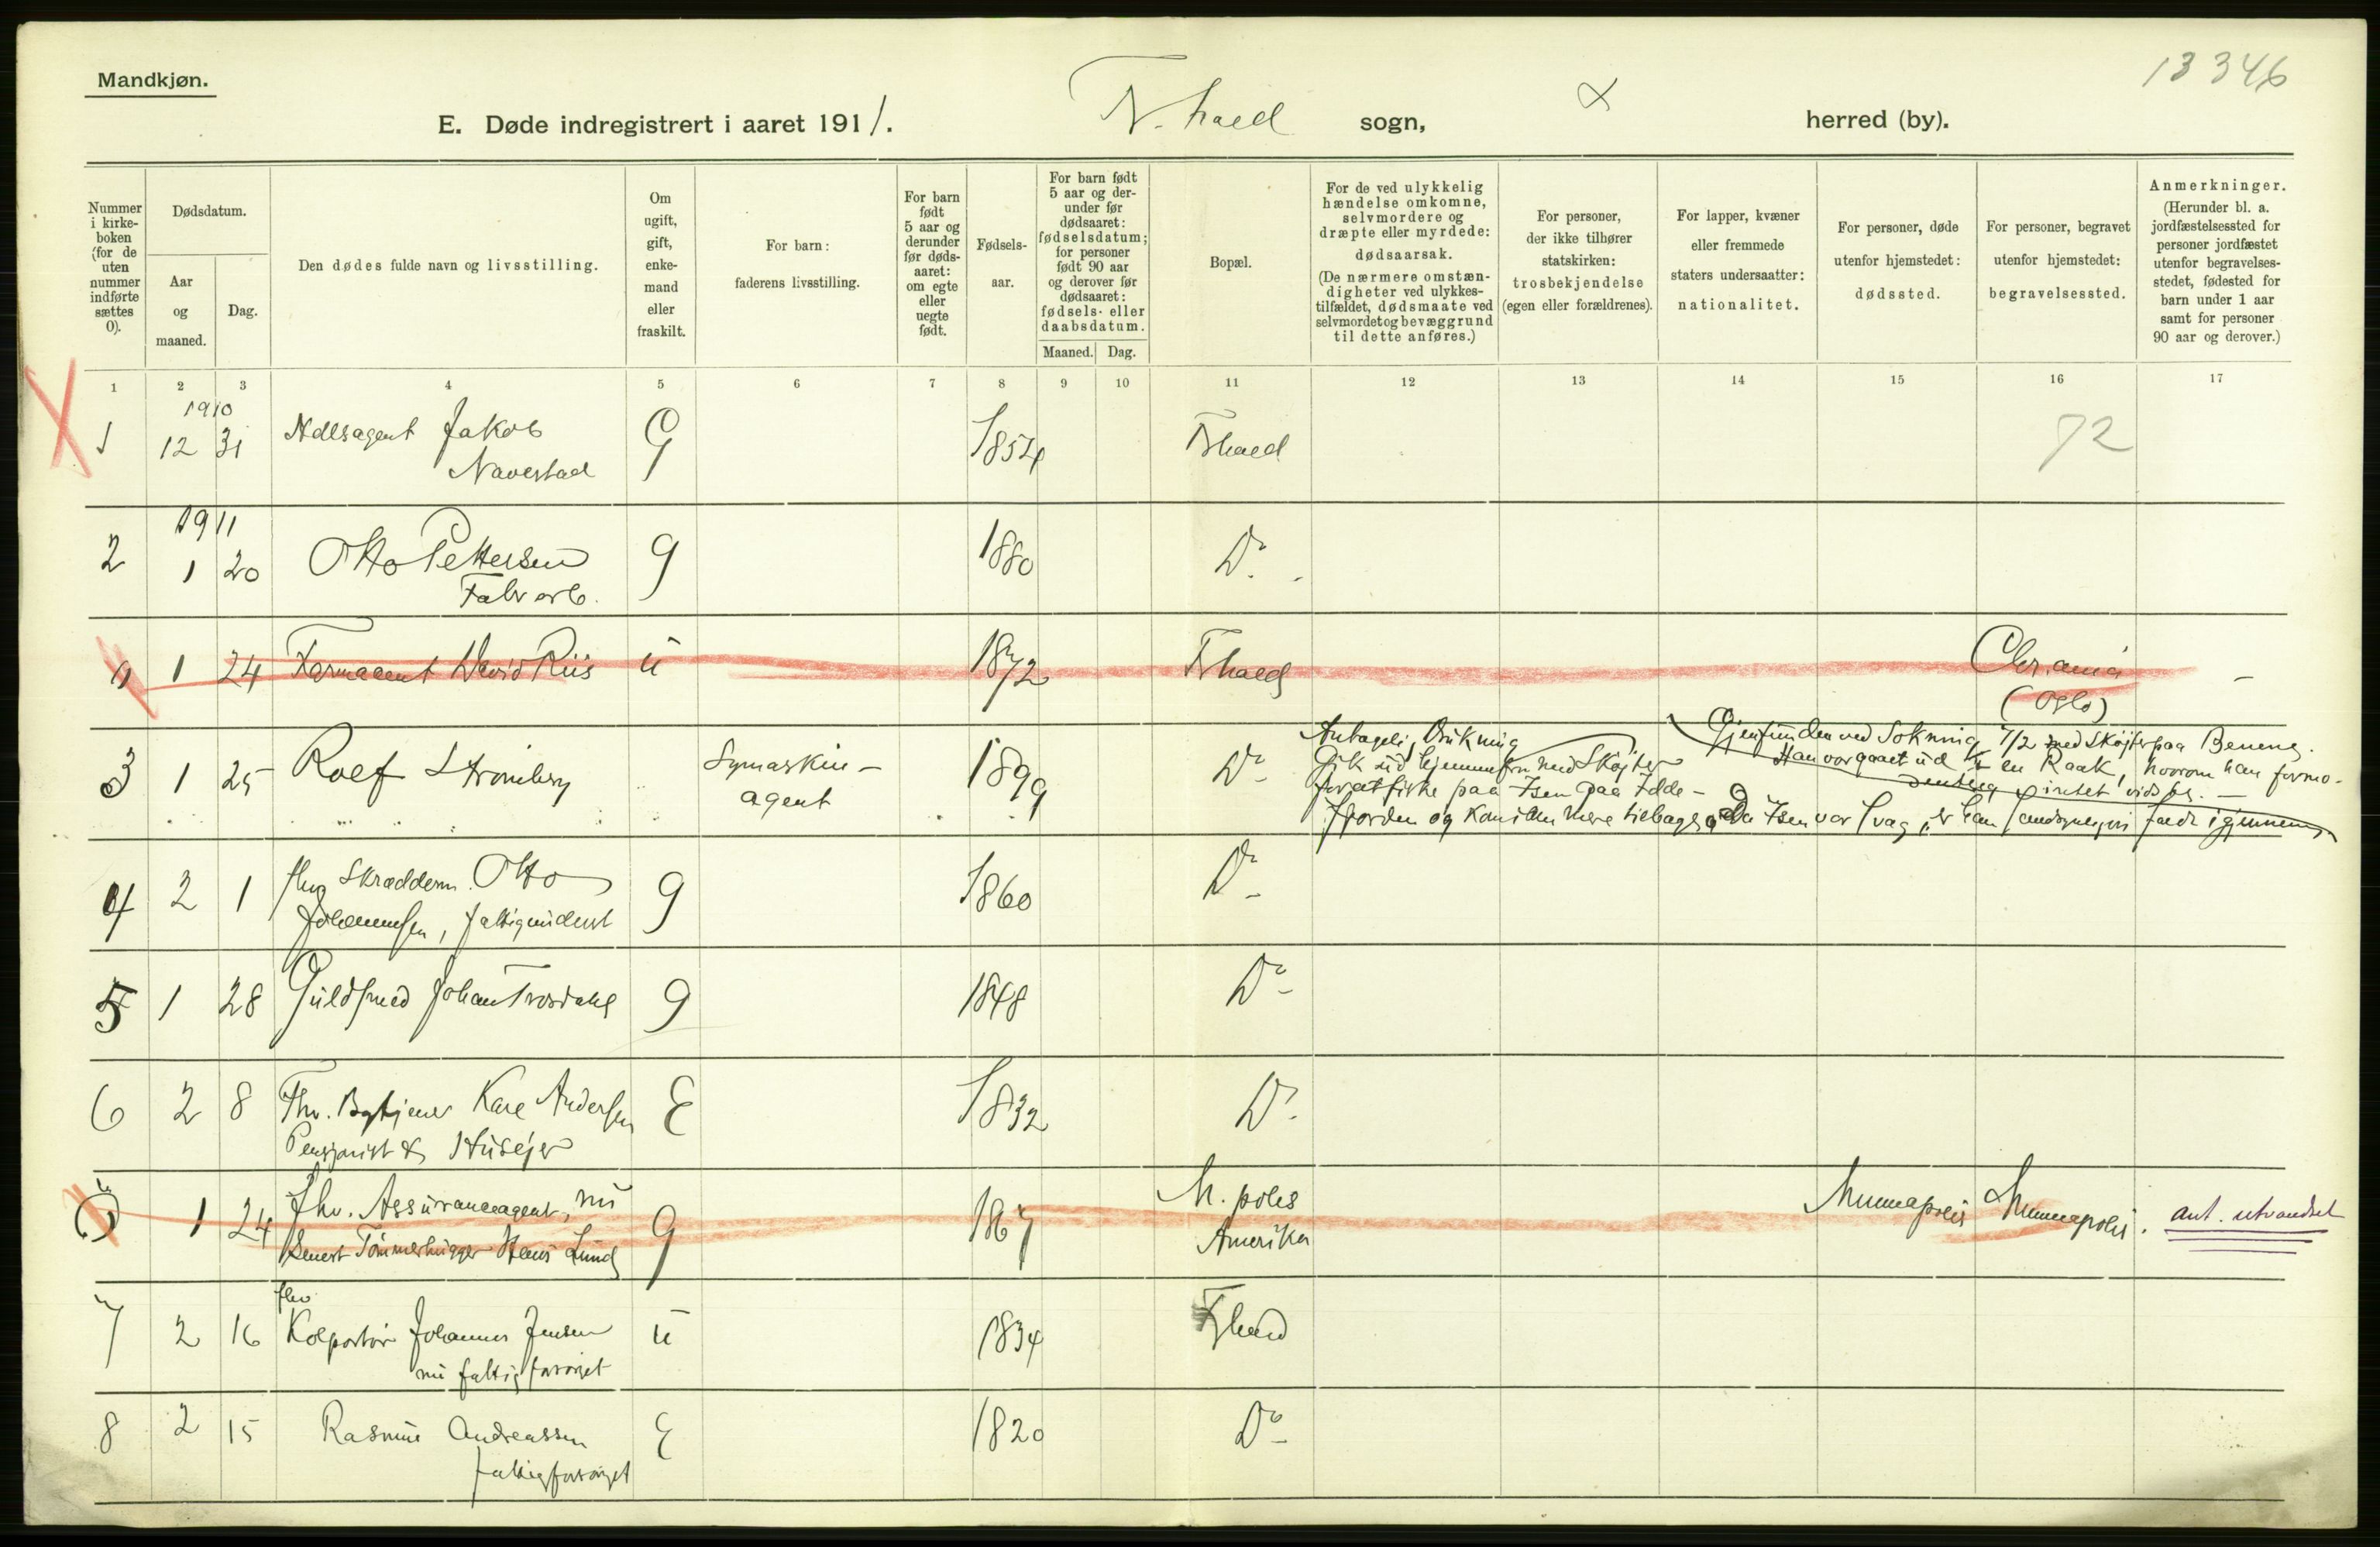 Mandkjøn.
13 346
E. Døde indregistrert i aaret 1911. sogn, herred (by).
Nummer i kirkeboken (for de uten nummer indførte sættes 0).
Dødsdatum.
Aar og maaned.
Dag.
Den dødes fulde navn og livsstilling.
Om ugift, gift, enkemand eller fraskilt.
For barn: faderens livsstilling.
For barn født 5 aar og derunder før dødsaaret: om egte eller uegte født.
Fødselsaar.
For barn født 5 aar og derunder før dødsaaret: fødselsdatum; for personer født 90 aar og derover før dødsaaret: fødsels- eller daabsdatum.
Maaned. Dag.
Bopæl.
For de ved ulykkelig hændelse omkomne, selvmordere og dræpte eller myrdede: dødsaarsak.
(De nærmere omstændigheter ved ulykkestilfældet, dødsmaate ved selvmordet og bevæggrund til dette anføres.)
For personer, der ikke tilhører statskirken: trosbekjendelse (egen eller forældrenes).
For lapper, kvæner eller fremmede staters undersaatter: nationalitet.
For personer, døde utenfor hjemstedet: dødssted.
For personer, begravet utenfor hjemstedet: begravelsessted.
Anmerkninger.
(Herunder bl. a. jordfæstelsessted for personer jordfæstet utenfor begravelsesstedet, fødested for barn under 1 aar samt for personer 90 aar og derover.)
1 2 3 4 5 6 7 8 9 10 11 12 13 14 15 16 17
1910
1 12 31 Hdlsagent Jakob G 1854 Fhald 72
Navestad
1911
2 1 20 Otto Pettersen g 1880 Do
Fabr arb.
1 24 David Riis u 1872 Fhald Chr.ania -
(Oslo)
3 1 25 Rolf Strømberg Symaskin- 1899 Do
agent
Antagelig Drukning
Gik ud hjemmefra med Skøjter
for at fiske paa Isen paa Idde-
fjorden og kom ikke mere tilbage, Da Isen var svag, er han sandsynligvis falt igjennem
Gjenfunden ved Sokning 7/2 med Skøjter paa Benene.
Han var gaaet ud i en Raak, hvorom han formo-
dentlig intet vidste. -
4 2 1 fhv Skrædderm. Otto g 1860 Do
Johannesen, fattigunderst
5 1 28 Guldsmed Johan Trosdahl g 1848 Do
6 2 8 Fhv. Bytjener Karl Andersen E 1832 Do
Pensjonist & Husejer
1 24 fhv. Assuranceagent, nu g 1867 M. polis Minneapolis Minneapolis. ant. utvandret
senest Tømmerhugger Hans Lund Amerika
fhv
7 2 16 Kolportør Johannes Jensen u 1834 Fhald
nu fattigforsørget
8 2 15 Rasmus Andreassen E 1820 Do
fattigforsørget